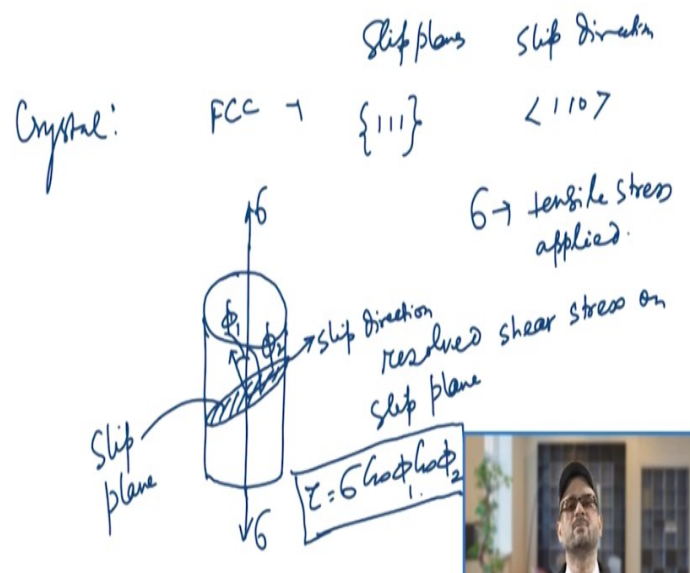 Slip plane slip direction
Crystal: FCC → {111} <110>
σ
σ → tensile stress
applied.
ϕ1
ϕ2
slip direction
resolved shear stress on
slip plane
Slip
plane
τ = σ Cosϕ1. Cosϕ2
σ